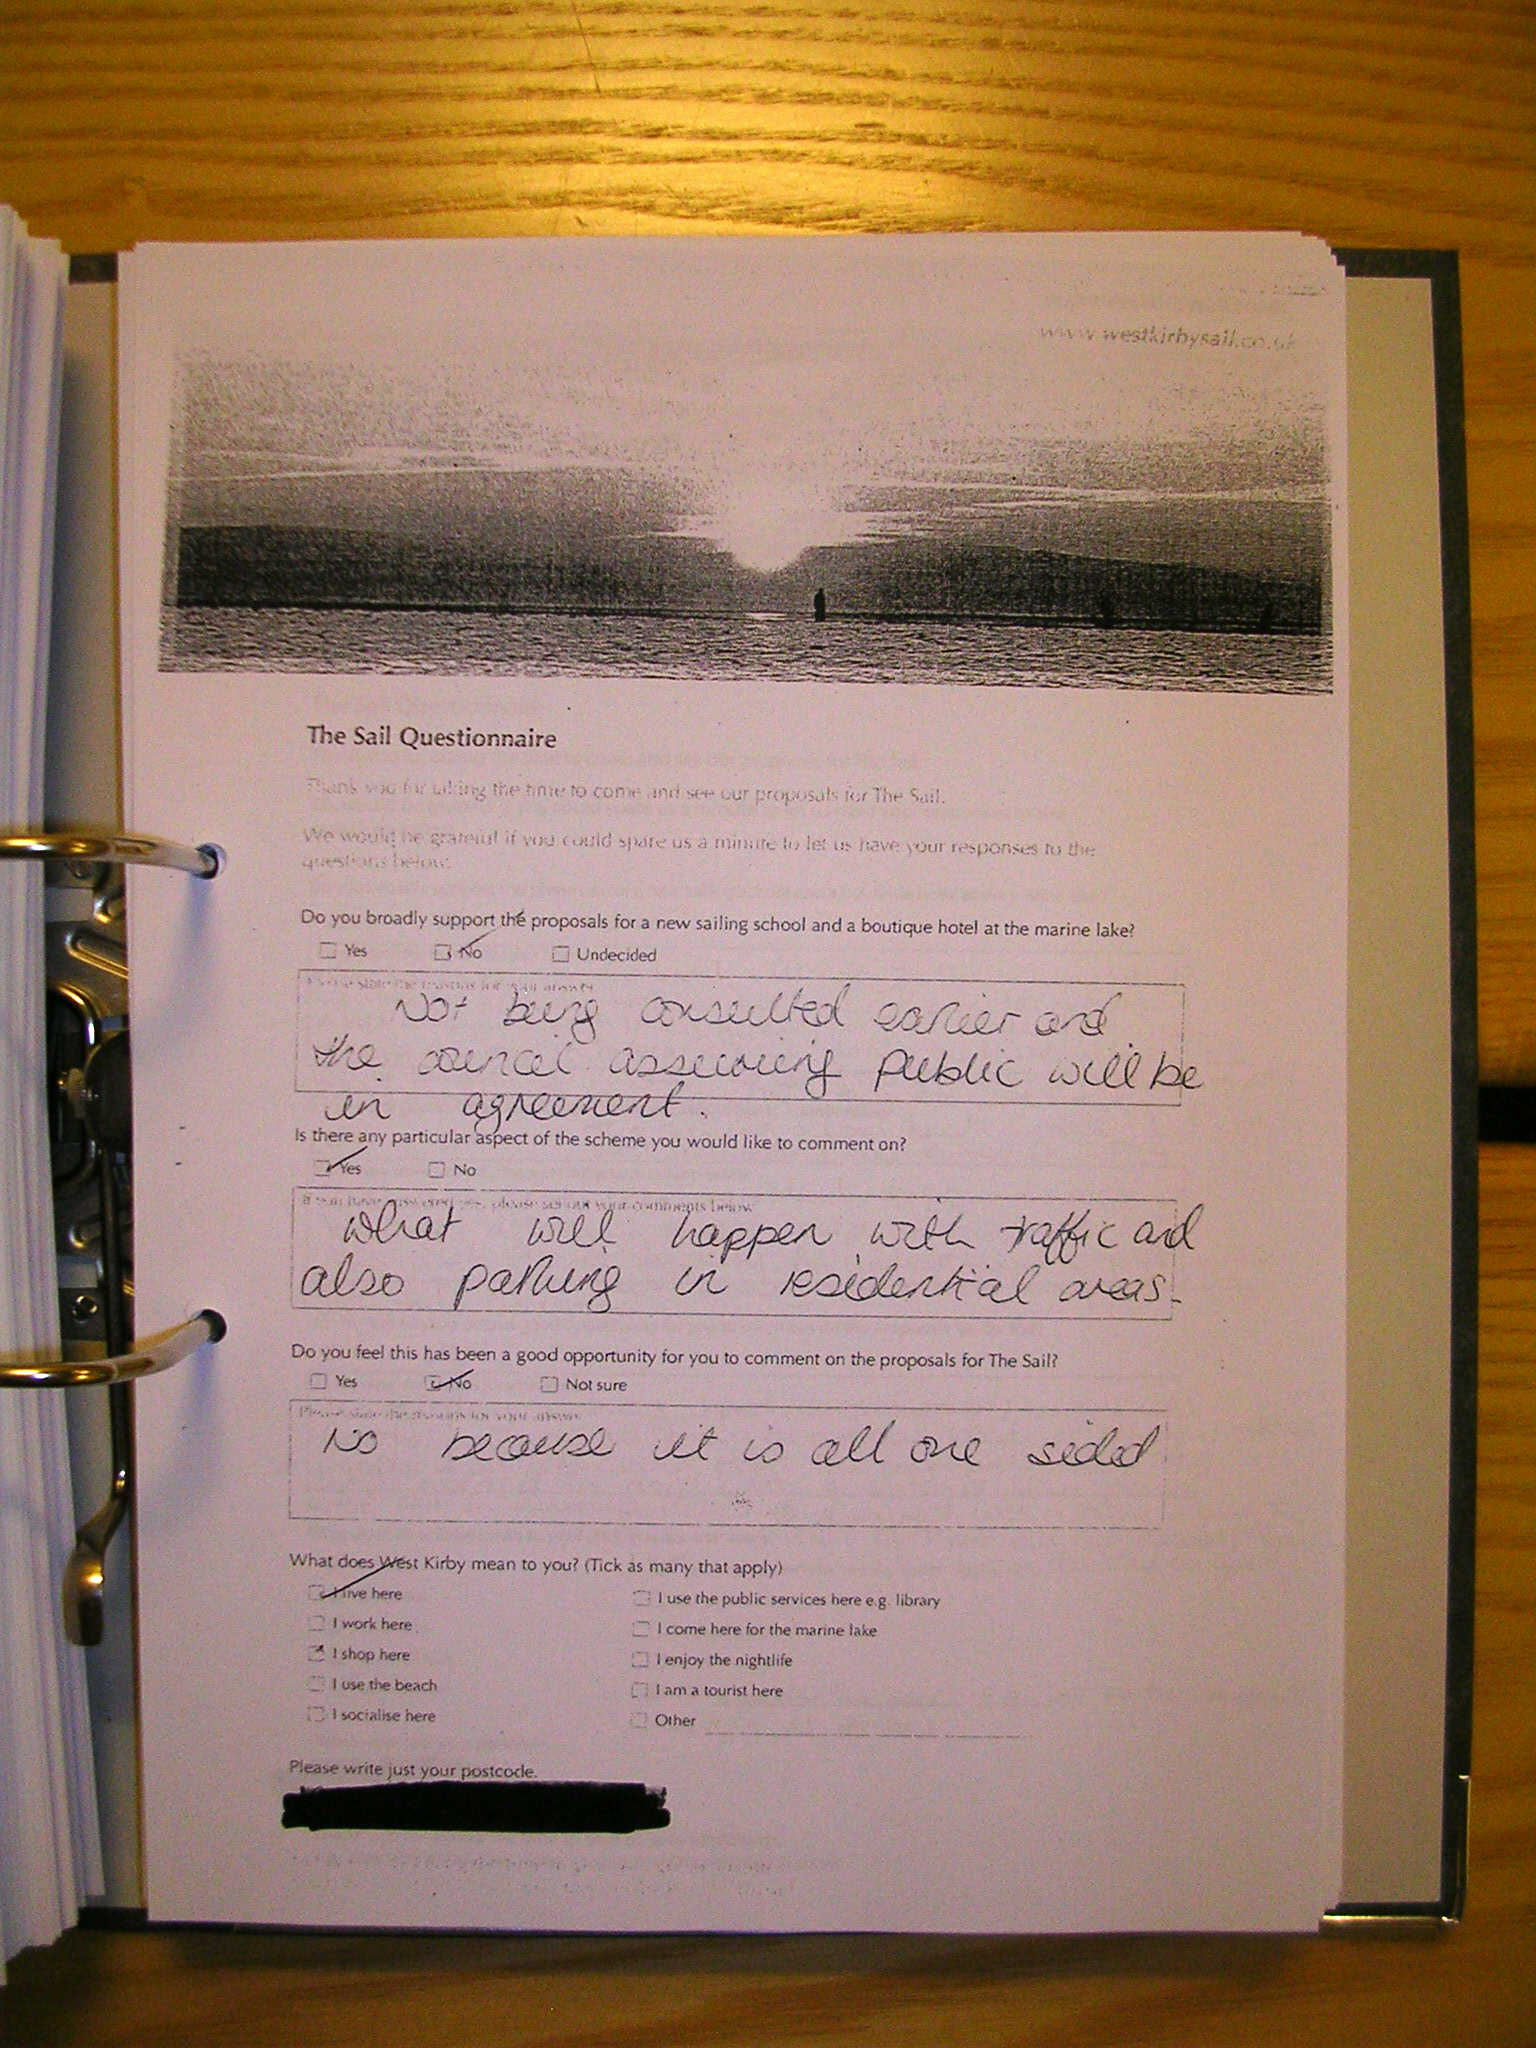 www.westkirbysail.co.uk
The Sail Questionnaire
Thank you for taking the time to come and see our proposals for The Sail.
We would be grateful if you could spare us a minute to let us have your responses to the
questions below.
Do you broadly support the proposals for a new sailing school and a boutique hotel at the marine lake?
Yes No Undecided
Please state the reasons for your answer
Not being consulted earlier and
the council assuming public will be
in agreement.
Is there any particular aspect of the scheme you would like to comment on?
Yes No
If you have answered yes, please set out your comments below
what will happen with traffic and
also parking in residential areas.
Do you feel this has been a good opportunity for you to comment on the proposals for The Sail?
Yes No Not sure
Please state the reasons for your answer
No because it is all one sided
What does West Kirby mean to you? (Tick as many that apply)
I live here I use the public services here e.g. library
I work here I come here for the marine lake
I shop here I enjoy the nightlife
I use the beach I am a tourist here
I socialise here Other
Please write just your postcode.